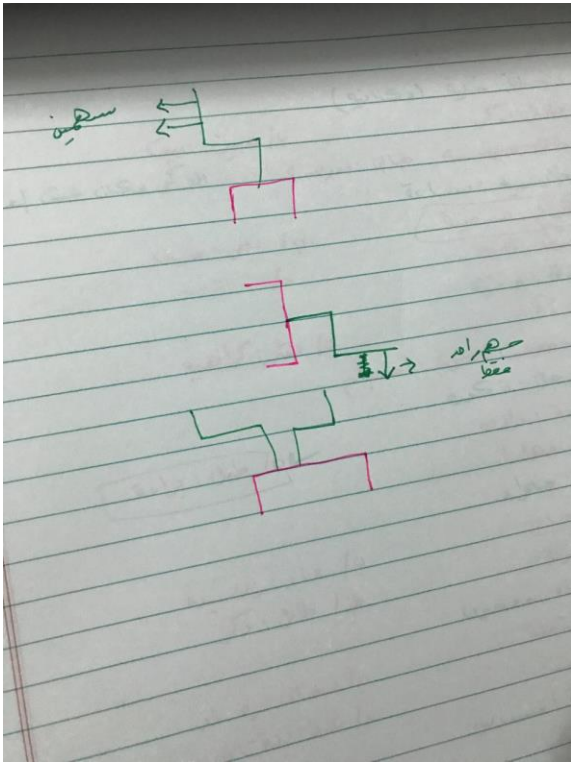 سهمين
سهم واحد
فقط